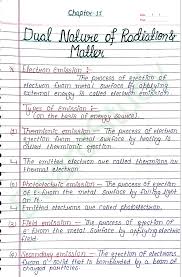 Chapter-11
Dual Nature of Radiation &
Matter
* Electron Emission :-
The process of ejection of
electron from metal surface by applying
external energy is called electron emission.
Types of Emission :-
(on the basis of energy source)
Thermionic emission - The process of electron
ejection from metal surface by heating is
called thermionic ejection.
The emitted electron are called thermions or
thermal electron.
Photoelectric emission - The process of ejection
of e- from the metal surface by falling light
on it.
Emitted electrons are called photoelectron.
Field emission - The process of ejection of
e- from the Metal Surface by applying electric
field.
Secondary emission - The ejection of electrons
from a solid that is bombarded by a beam of
charged particles.